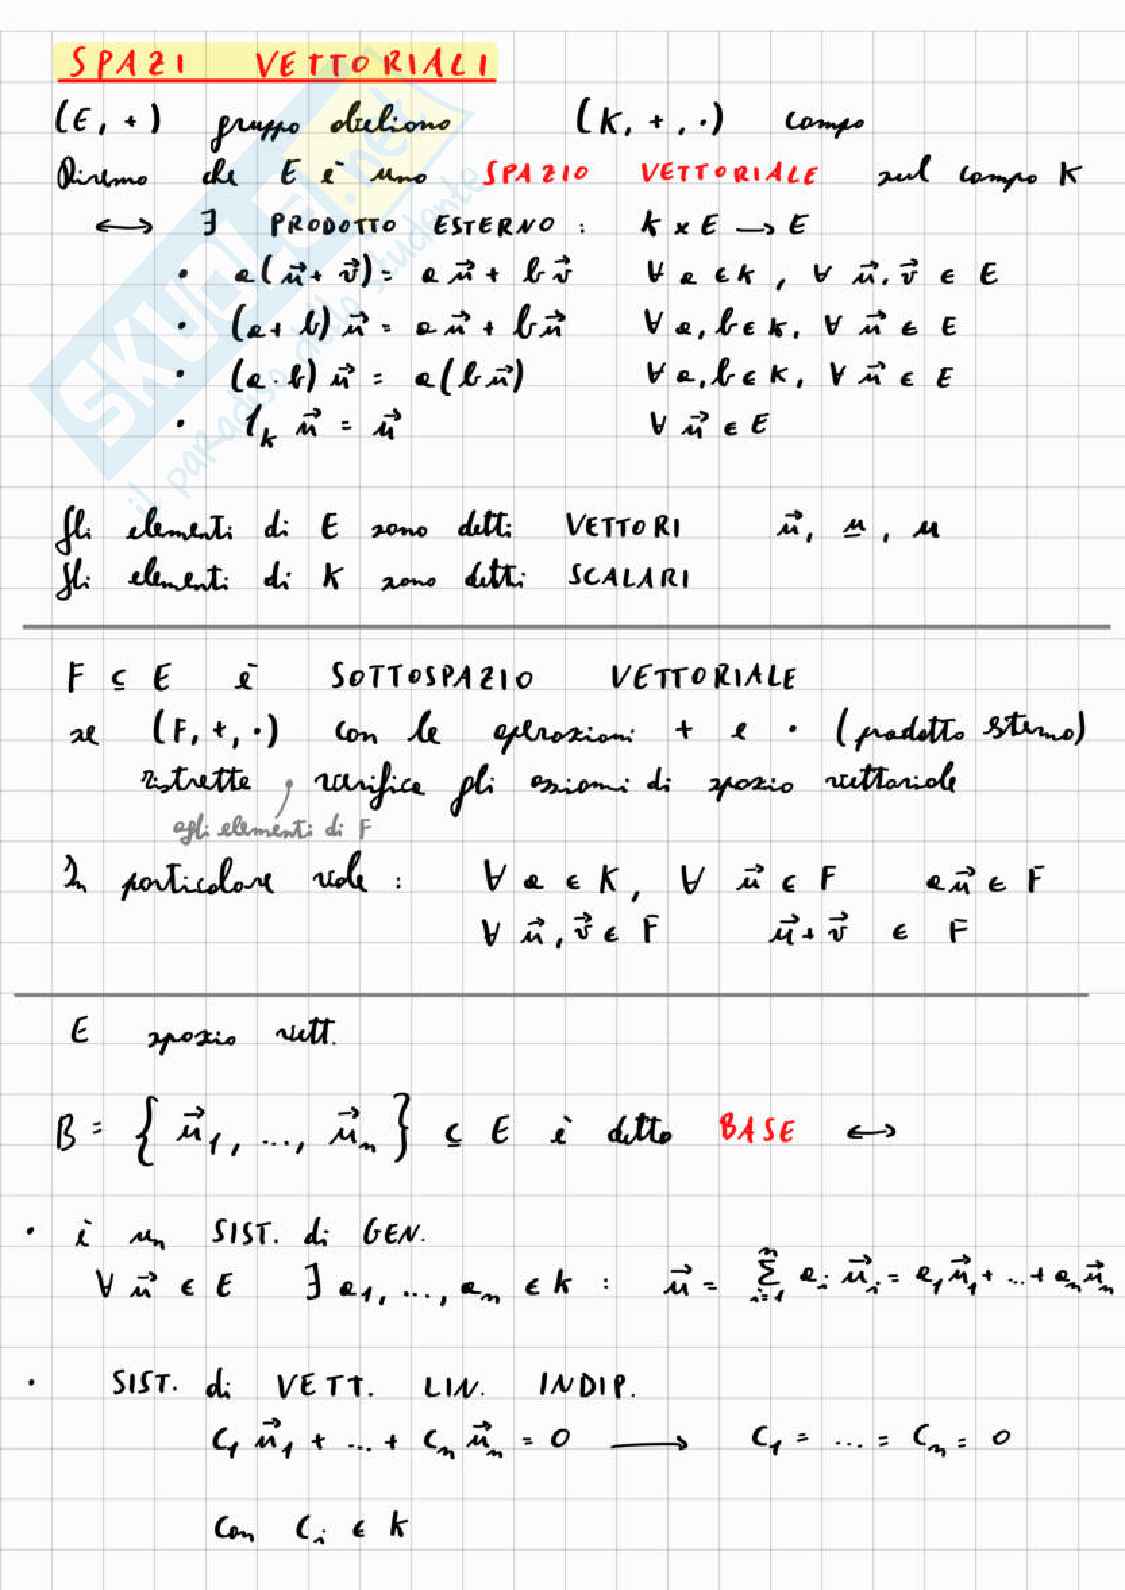 SPAZI VETTORIALI
(E, +) gruppo abeliano (K, +, ·) campo
Diremo che E è uno SPAZIO VETTORIALE sul campo K
⟷ ∃ PRODOTTO ESTERNO : K x E → E
• a(u⃗ + v⃗) = a u⃗ + b v⃗ ∀ a ∈ K, ∀ u⃗, v⃗ ∈ E
• (a + b) u⃗ = a u⃗ + b u⃗ ∀ a, b ∈ K, ∀ u⃗ ∈ E
• (a · b) u⃗ = a(b u⃗) ∀ a, b ∈ K, ∀ u⃗ ∈ E
• 1ₖ u⃗ = u⃗ ∀ u⃗ ∈ E
SKUOLA.net
il paradiso dello studente
Gli elementi di E sono detti VETTORI u⃗, u̲, u
Gli elementi di K sono detti SCALARI
F ⊆ E è SOTTOSPAZIO VETTORIALE
se (F, +, ·) con le operazioni + e · (prodotto esterno)
ristrette, verifica gli assiomi di spazio vettoriale
agli elementi di F
In particolare vale : ∀ a ∈ K, ∀ u⃗ ∈ F a u⃗ ∈ F
∀ u⃗, v⃗ ∈ F u⃗ + v⃗ ∈ F
E spazio vett.
B = { u⃗₁, ..., u⃗ₙ } ⊆ E è detto BASE ⟷
• è un SIST. di GEN.
∀ u⃗ ∈ E ∃ a₁, ..., aₙ ∈ K : u⃗ = Σᵢ₌₁ⁿ aᵢ u⃗ᵢ = a₁ u⃗₁ + ... + aₙ u⃗ₙ
• SIST. di VETT. LIN. INDIP.
C₁ u⃗₁ + ... + Cₙ u⃗ₙ = 0 ⟶ C₁ = ... = Cₙ = 0
con Cᵢ ∈ K